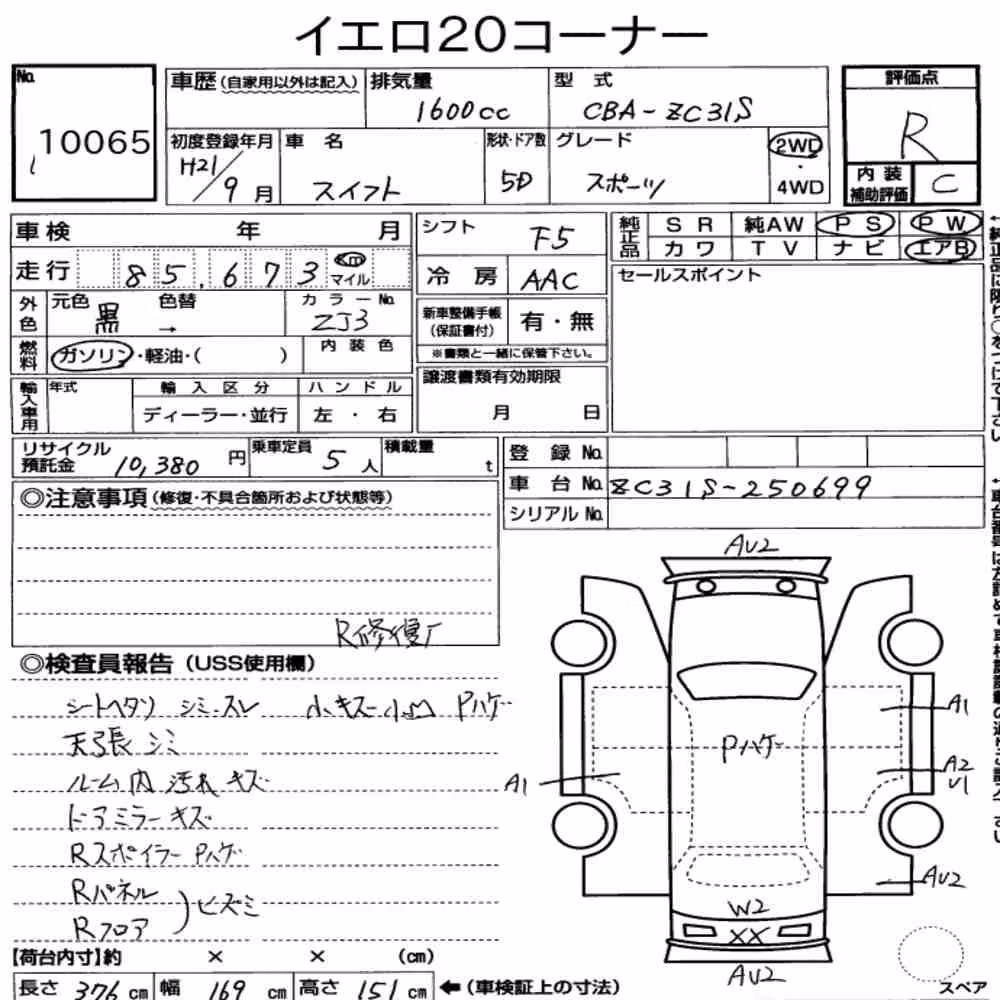 イエロ20コーナー
No. 10065
車歴(自家用以外は記入) 排気量 1600cc 型式 CBA-ZC31S
評価点 R
初度登録年月 H21/9月 車名 スイフト 形状・ドア数 5D グレード スポーツ 2WD・4WD
内装補助評価 C
車検 年 月
シフト F5
純正品 SR 純AW PS PW
カワ TV ナビ エアB
走行 85,673 Km マイル
冷房 AAC
セールスポイント
外色 元色 黒 色替 → カラーNo. ZJ3
新車整備手帳(保証書付) 有・無
※書類と一緒に保管下さい。
燃料 ガソリン・軽油・( ) 内装色
譲渡書類有効期限 月 日
輸入車用 年式 輸入区分 ハンドル
ディーラー・並行 左・右
リサイクル預託金 10,380円 乗車定員 5人 積載量 t
登録No.
車台No. ZC31S-250699
シリアルNo.
◎注意事項(修復・不具合箇所および状態等)
R修復有
◎検査員報告(USS使用欄)
シートヘタリ シミ・スレ 小キズ 小凹 Pハゲ
天張シミ
ルーム内 汚れ キズ
ドアミラーキズ
Rスポイラー Pハゲ
Rパネル
Rフロア
ヒズミ
AU2
A1
Pハゲ
A1
A2
U1
AU2
W2
XX
AU2
【荷台内寸】約 × × (cm)
長さ 376cm 幅 169cm 高さ 151cm ←(車検証上の寸法)
スペア